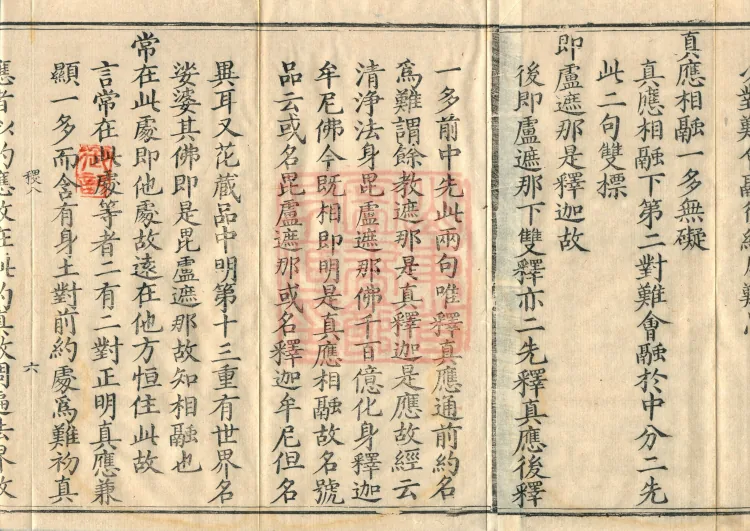 真應相融一多無礙
真應相融下第二對難會融於中分二先
此二句雙標
即盧遮那是釋迦故
後即盧遮那下雙釋亦二先釋真應後釋
一多前中先此兩句唯釋真應通前約名
爲難謂餘教遮那是真釋迦是應故經云
清淨法身毘盧遮那佛千百億化身釋迦
牟尼佛今既相即明是真應相融故名號
品云或名毘盧遮那或名釋迦牟尼但名
異耳又花藏品中明第十三重有世界名
娑婆其佛即是毘盧遮那故知相融也
常在此處即他處故遠在他方恒住此故
言常在此處等者二有二對正明真應兼
顯一多而含有身土對前約處爲難初真
稷八 六
應者以約應故在此約真故周遍法界故